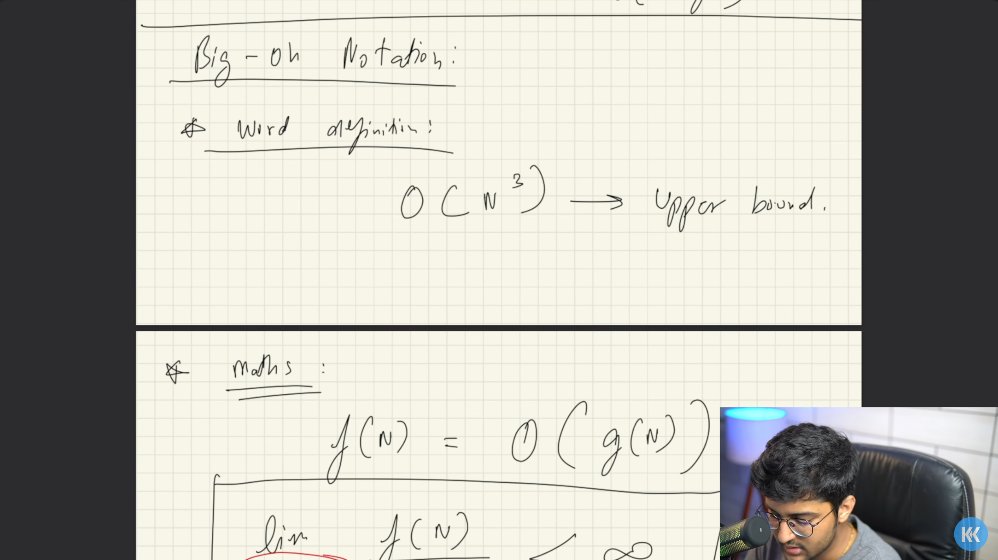 Big-oh Notation:
* Word definition:
O(N³) → Upper bound.
* Maths:
f(N) = O(g(N))
lim f(N) < ∞